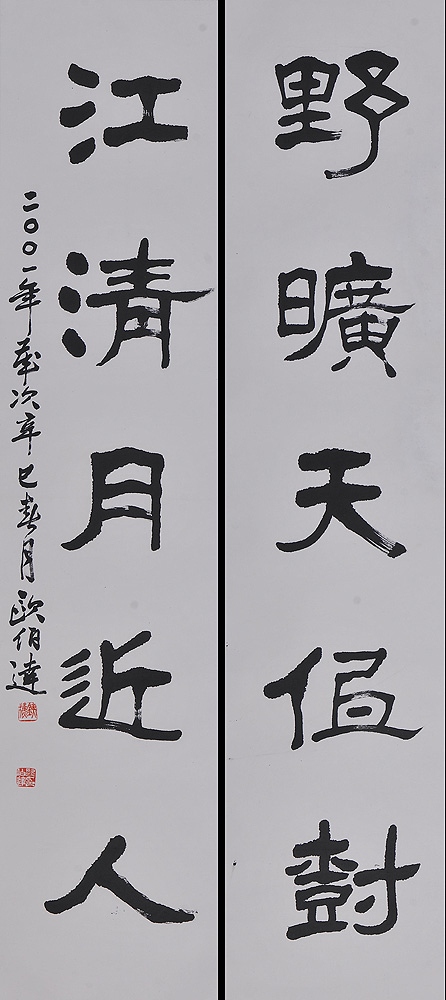 野曠天低樹
江清月近人
二〇〇一年歲次辛巳春月歐伯達